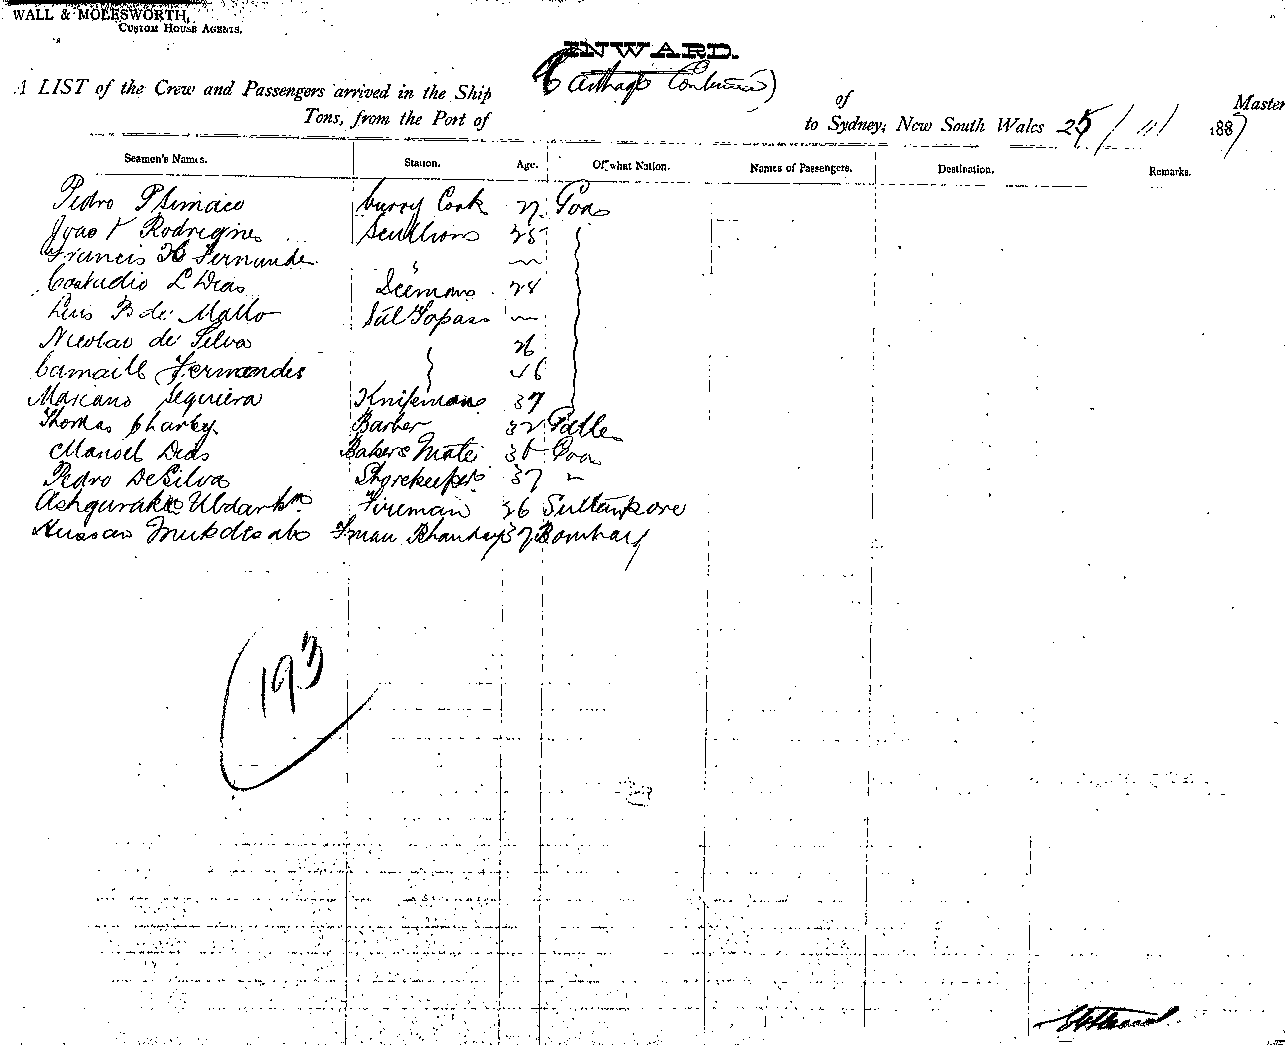 WALL & MOLESWORTH,
CUSTOM HOUSE AGENTS.
INWARD.
(Carthage Continued)
A LIST of the Crew and Passengers arrived in the Ship of Master
Tons, from the Port of to Sydney, New South Wales 25/11/ 1887
Seamen's Names. Station. Age. Of what Nation. Names of Passengers. Destination. Remarks.
Pedro Curry Cook 27 Goa
Joao F Rodrigues Scullions 25
Francis X Fernandes "
Costudio L Dias 28
Luis B de Mallo Topass
Nicolao de Silva 26
Camaill Fernandes
Mariano Sequiera Knifeman 37
Thomas Charley Barber 32 Galle
Manoel Dias Bakers Mate Goa
Pedro DeSilva Storekeeper 37 "
Fireman 26 Sultanpore
Hussan Bombay
193